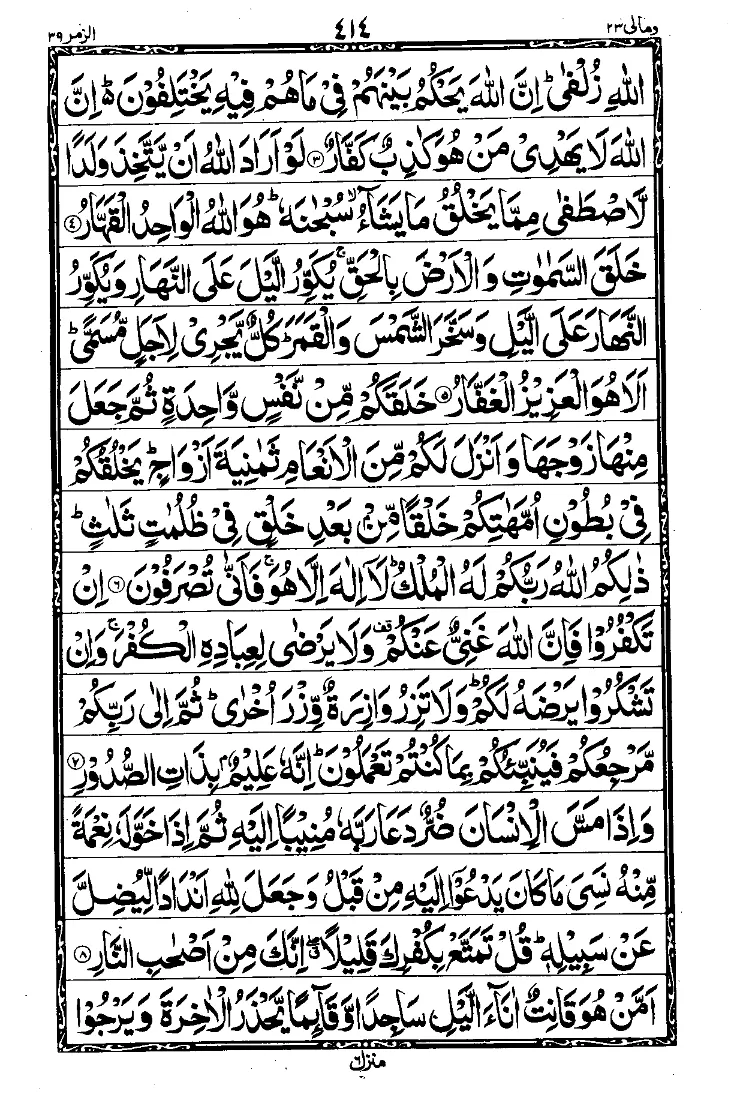 الزمر ٣٩ ٤١٤ ومالى ٢٣
اللهِ زُلْفٰى ؕ اِنَّ اللهَ يَحْكُمُ بَيْنَهُمْ فِىْ مَا هُمْ فِيْهِ يَخْتَلِفُوْنَ ؕ۬ اِنَّ
اللهَ لَا يَهْدِىْ مَنْ هُوَ كٰذِبٌ كَفَّارٌ ﴿۳﴾ لَوْ اَرَادَ اللهُ اَنْ يَّتَّخِذَ وَلَدًا
لَّاصْطَفٰى مِمَّا يَخْلُقُ مَا يَشَآءُ ۙ سُبْحٰنَهٗ ؕ هُوَ اللهُ الْوَاحِدُ الْقَهَّارُ ﴿۴﴾
خَلَقَ السَّمٰوٰتِ وَ الْاَرْضَ بِالْحَقِّ ۚ يُكَوِّرُ الَّيْلَ عَلَى النَّهَارِ وَيُكَوِّرُ
النَّهَارَ عَلَى الَّيْلِ وَسَخَّرَ الشَّمْسَ وَالْقَمَرَ ؕ كُلٌّ يَّجْرِىْ لِاَجَلٍ مُّسَمًّى ؕ
اَلَا هُوَ الْعَزِيْزُ الْغَفَّارُ ﴿۵﴾ خَلَقَكُمْ مِّنْ نَّفْسٍ وَّاحِدَةٍ ثُمَّ جَعَلَ
مِنْهَا زَوْجَهَا وَ اَنْزَلَ لَكُمْ مِّنَ الْاَنْعَامِ ثَمٰنِيَةَ اَزْوَاجٍ ؕ يَخْلُقُكُمْ
فِىْ بُطُوْنِ اُمَّهٰتِكُمْ خَلْقًا مِّنْۢ بَعْدِ خَلْقٍ فِىْ ظُلُمٰتٍ ثَلٰثٍ ؕ
ذٰلِكُمُ اللهُ رَبُّكُمْ لَهُ الْمُلْكُ ؕ لَاۤ اِلٰهَ اِلَّا هُوَ ۚ فَاَنّٰى تُصْرَفُوْنَ ﴿۶﴾ اِنْ
تَكْفُرُوْا فَاِنَّ اللهَ غَنِىٌّ عَنْكُمْ ۟ وَلَا يَرْضٰى لِعِبَادِهِ الْكُفْرَ ۚ وَاِنْ
تَشْكُرُوْا يَرْضَهُ لَكُمْ ؕ وَلَا تَزِرُ وَازِرَةٌ وِّزْرَ اُخْرٰى ؕ ثُمَّ اِلٰى رَبِّكُمْ
مَّرْجِعُكُمْ فَيُنَبِّئُكُمْ بِمَا كُنْتُمْ تَعْمَلُوْنَ ؕ اِنَّهٗ عَلِيْمٌۢ بِذَاتِ الصُّدُوْرِ ﴿۷﴾
وَ اِذَا مَسَّ الْاِنْسَانَ ضُرٌّ دَعَا رَبَّهٗ مُنِيْبًا اِلَيْهِ ثُمَّ اِذَا خَوَّلَهٗ نِعْمَةً
مِّنْهُ نَسِىَ مَا كَانَ يَدْعُوْۤا اِلَيْهِ مِنْ قَبْلُ وَ جَعَلَ لِلّٰهِ اَنْدَادًا لِّيُضِلَّ
عَنْ سَبِيْلِهٖ ؕ قُلْ تَمَتَّعْ بِكُفْرِكَ قَلِيْلًا ۖ اِنَّكَ مِنْ اَصْحٰبِ النَّارِ ﴿۸﴾
اَمَّنْ هُوَ قَانِتٌ اٰنَآءَ الَّيْلِ سَاجِدًا وَّقَآئِمًا يَّحْذَرُ الْاٰخِرَةَ وَ يَرْجُوْا
منزل ٦